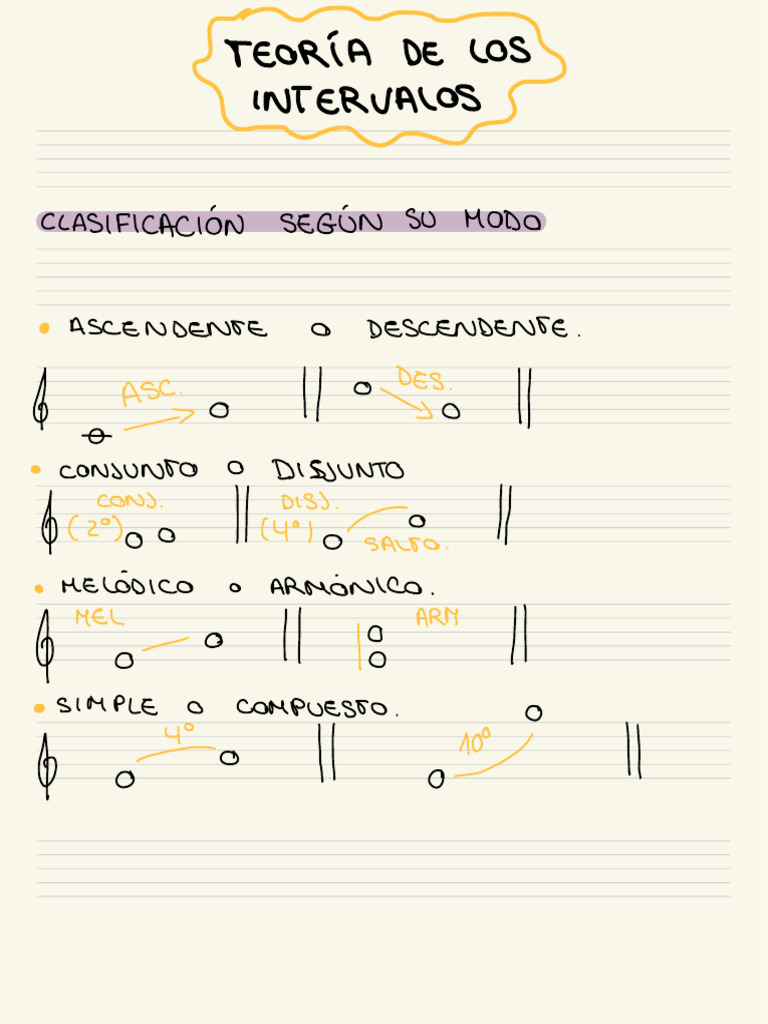 TEORÍA DE LOS
INTERVALOS
CLASIFICACIÓN SEGÚN SU MODO
• ASCENDENTE O DESCENDENTE.
ASC. DES.
• CONJUNTO O DISJUNTO
CONJ. DISJ.
(2º) (4º)
SALTO.
• MELÓDICO O ARMÓNICO.
MEL ARM
• SIMPLE O COMPUESTO.
4º 10º